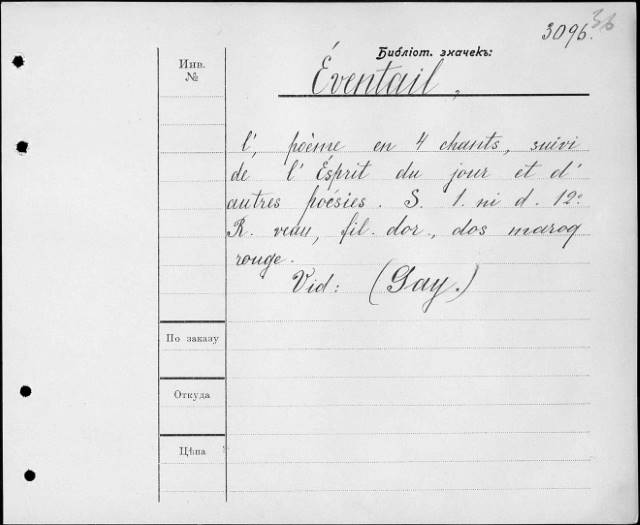 3096. 36
Библіот. значекъ:
Инв.
№
Éventail,
l', poème en 4 chants, suivi
de l'Ésprit du jour et d'
autres poésies. S. l. ni d. 12º
R. veau, fil. dor., dos maroq
rouge.
Vid: (Gay.)
По заказу
Откуда
Цѣна